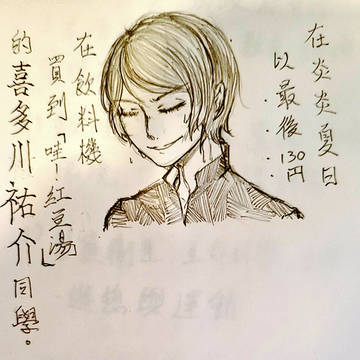 在炎炎夏日
以最後130円
在飲料機
買到「哇─紅豆湯」
的喜多川祐介同學。